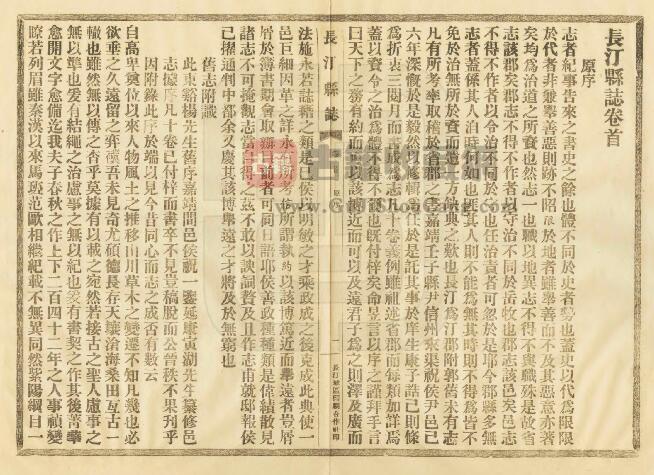 長汀縣誌卷首
原序
志者紀事告來之書史之餘也體不同於史者勢也蓋史以代爲限限
於代者非兼舉善惡則跡不昭限於地者雖舉善而不及其惡意亦著
矣均爲治道之所資也然志一也職以地異志不得不與職殊是故省
志該郡郡志不得不作者以守治不同於岳牧也郡志該邑邑志
不得不作者以令治不同於守也任治責者可忽於是耶今郡縣多無
志者蓋係其人泊時何如也匪其人則不能爲無其時則不得爲皆不
免於治無所於資而遠方缺典之歎也長汀爲汀郡附郭舊未有志
凡有所考率取稽於省郡之書嘉靖壬子縣尹信州來渠祝侯尹邑已
六年深慨於是毅然以修輯爲任於是託其事於庠生康子誥已則條
爲折衷三閱月而書成爲志凡十卷義例雖祖述省郡而每類加詳焉
蓋以資令之治爲體不得不詳也既付梓矣命予言以序之謹拜手言
曰天下之務有約而可以該博近而可以及遠君子爲之則澤及廣而
長汀縣誌
原序
法施永若誌籍之類是已侯以明敏之才乘政成之後克成此典使一
邑巨細因革之詳永有所考焉所謂執約以該博篤近而舉遠者豈屑
屑於簿書期會取辦目前者可同日語耶侯善政種種類是偉績散見
諸志不可掩觀志者當自得之茲不敢以諛詞贅及且作志甫就邸報侯
已擢通判中都余又慶其該博舉遠之才將及於無窮也
舊志附識
此東谿楊先生舊序嘉靖間邑侯祝一鑿延康寅湖先生纂修邑
志據序凡十卷已付梓而書卒不見豈稿脫而公晉秩不果刋乎
因附錄此序於端以見今昔同心而志之成否有數云
自高卑奠位以來人物風土之推移山川草木之變遷不知凡幾也必
欲垂之久遠留之弈禩吾未見奇尤碩德長存天壤滄海桑田亙古一
轍也雖然無以傳之者乎莫據有以載之宛然若接古之聖人慮事之
無以舉也爰有結繩之治慮事之無以紀也爰有書契之作其後菁華
愈開文字愈備迄我夫子春秋之作上下二百四十二年之人事禎變
瞭若列眉雖秦漢以來馬班范歐相繼紀載不無異同然紫陽綱目一